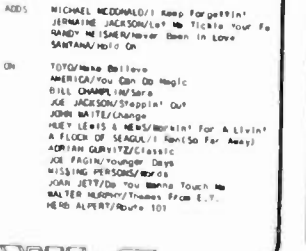 ADDS MICHAEL MCDONALD/I Keep Forgettin'
JERMAINE JACKSON/Let Me Tickle Your Fa
RANDY MEISNER/Never Been In Love
SANTANA/Hold On
ON TOTO/Make Believe
AMERICA/You Can Do Magic
BILL CHAMPLIN/Sara
JOE JACKSON/Steppin' Out
JOHN WAITE/Change
HUEY LEWIS & NEWS/Workin' For A Livin'
A FLOCK OF SEAGUL/I Ran(So Far Away)
ADRIAN GURVITZ/Classic
JOE FAGIN/Younger Days
MISSING PERSONS/Words
JOAN JETT/Do You Wanna Touch Me
WALTER MURPHY/Themes From E.T.
HERB ALPERT/Route 101